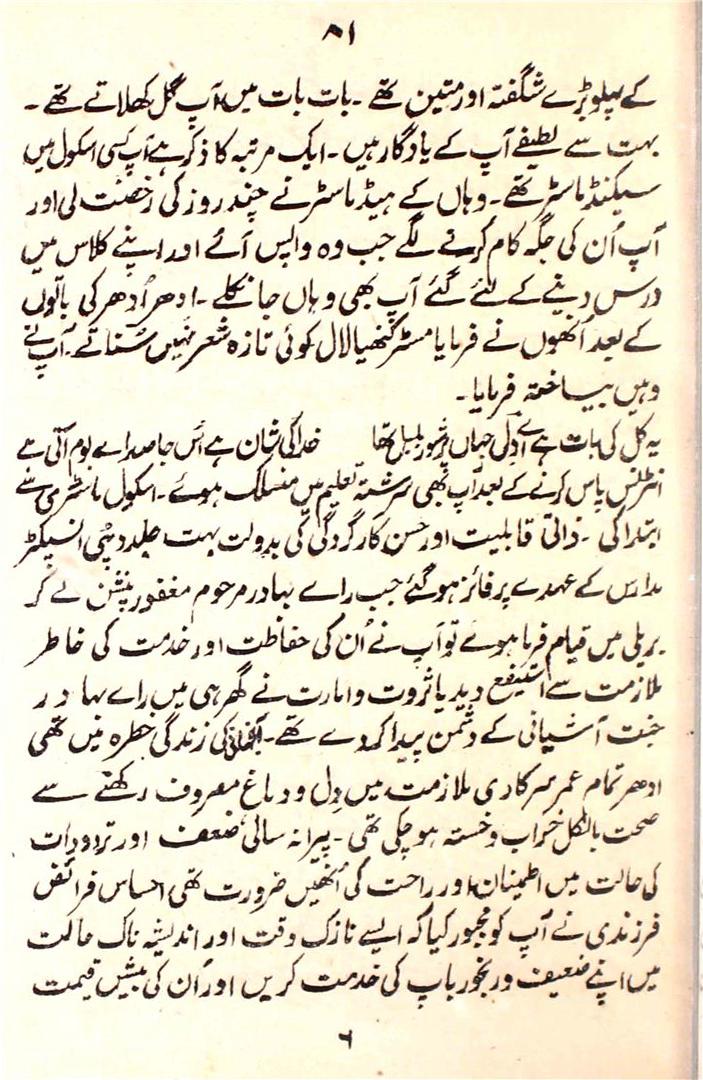 ۸۱
کے پہلو بڑے شگفتہ اور متین تھے ۔ بات بات میں آپ گل کھلاتے تھے ۔
بہت سے لطیفے آپ کے یادگار ہیں ۔ ایک مرتبہ کا ذکر ہے آپ کسی اسکول میں
سیکنڈ ماسٹر تھے ۔ وہاں کے ہیڈ ماسٹر نے چند روز کی رخصت لی اور
آپ اُن کی جگہ کام کرنے لگے جب وہ واپس آئے اور اپنے کلاس میں
درس دینے کے لئے گئے آپ بھی وہاں جا نکلے ۔ ادھر اُدھر کی باتوں
کے بعد اُنھوں نے فرمایا مسٹر کنھیا لال کوئی تازہ شعر نہیں سُناتے ۔ آپ نے
وہیں بیساختہ فرمایا ۔
یہ کل کی بات ہے اے دِل جہاں پر شور بلبل تھا خدا کی شان ہے اُس جا صداے بوم آتی ہے
انٹرنس پاس کرنے کے بعد آپ بھی سر رشتہ تعلیم میں منسلک ہوئے ۔ اسکول ماسٹری سے
ابتدا کی ۔ ذاتی قابلیت اور حسن کارگردگی کی بدولت بہت جلد ڈپٹی انسپکٹر
مدارس کے عہدے پر فائز ہو گئے جب راے بہادر مرحوم مغفور پنشن لے کر
بریلی میں قیام فرما ہوے تو آپ نے اُن کی حفاظت اور خدمت کی خاطر
ملازمت سے استیفع دیدیا ثروت و امارت نے گھر ہی میں راے بہادر
جنت آشیانی کے دشمن پیدا کر دے تھے ۔ کی زندگی خطرہ میں تھی
ادھر تمام عمر سرکاری ملازمت میں دِل و دماغ مصروف رکھنے سے
صحت بالکل خراب و خستہ ہو چکی تھی ۔ پیرانہ سالی ضعف اور ترددات
کی حالت میں اطمینان اور راحت کی اُنھیں ضرورت تھی احساس فرائض
فرزندی نے آپ کو مجبور کیا کہ ایسے نازک وقت اور اندیشہ ناک حالت
میں اپنے ضعیف و رنجور باپ کی خدمت کریں اور اُن کی بیش قیمت
۶